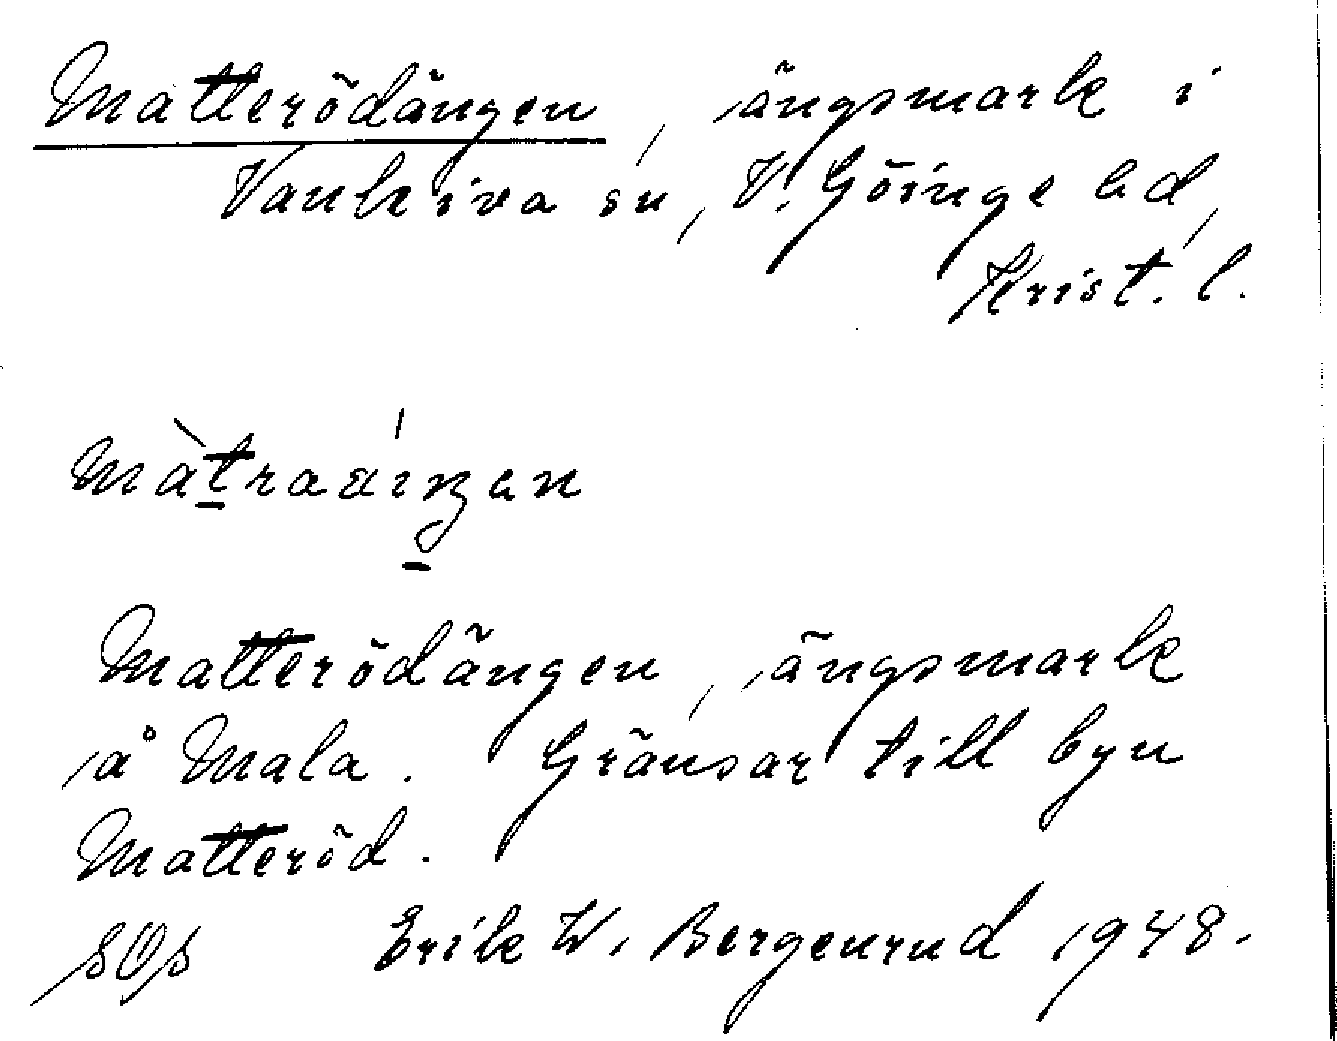 Matterödängen, ängsmark i
Vankiva sn, V. Göinge hd,
Krist. l.
màtraæíŋan
Matterödängen, ängsmark
å Mala. Gränsar till byn
Matteröd.
SOS Erik W. Bergenrud 1948.